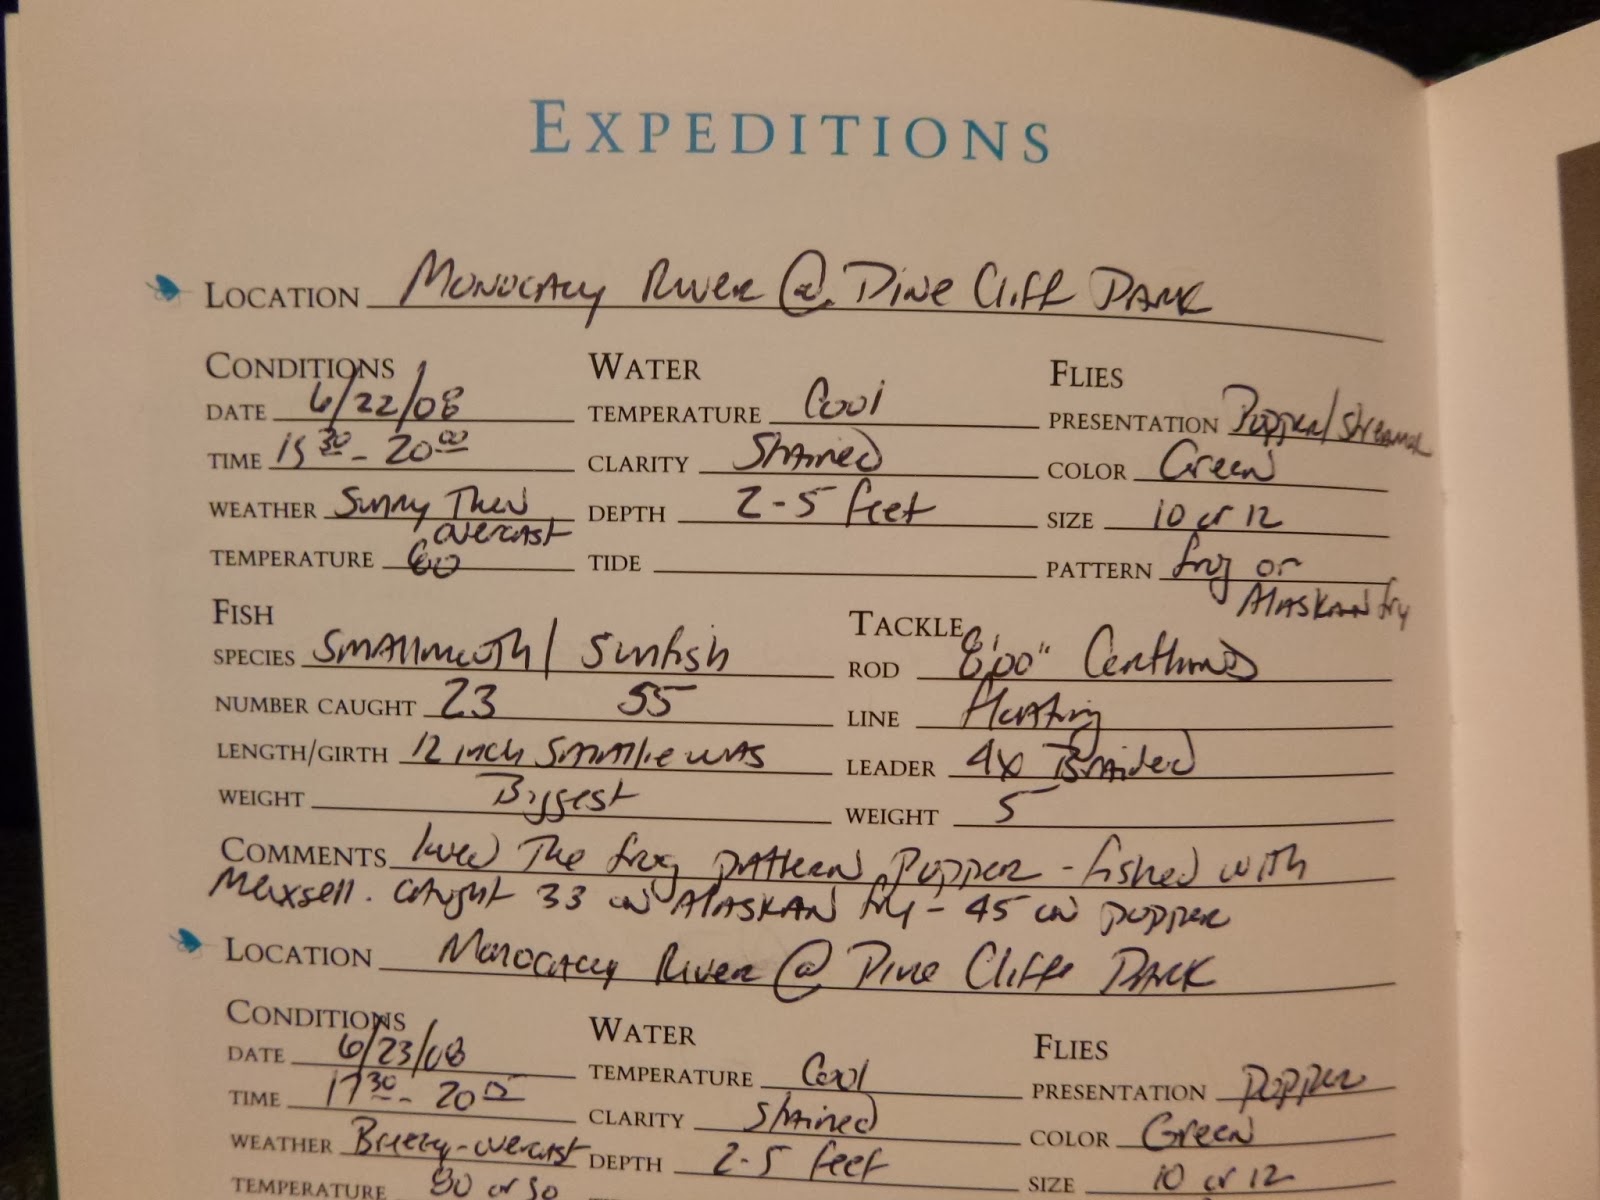 EXPEDITIONS
LOCATION Monocacy River @ Pine Cliff Park
CONDITIONS WATER FLIES
DATE 6/22/08 TEMPERATURE Cool PRESENTATION Popper/Streamer
TIME 15 30 - 20 00 CLARITY Stained COLOR Green
WEATHER Sunny Then overcast DEPTH 2-5 feet SIZE 10 or 12
TEMPERATURE TIDE PATTERN frog or Alaskan fry
FISH TACKLE
SPECIES Smallmouth/Sunfish ROD 8'00"
NUMBER CAUGHT 23 55 LINE Floating
LENGTH/GIRTH 12 inch Smallie was LEADER 4x Braided
WEIGHT Biggest WEIGHT 5
COMMENTS The frog pattern Popper - fished with
caught 33 on Alaskan fry - 45 on popper
LOCATION Monocacy River @ Pine Cliff Park
CONDITIONS WATER FLIES
DATE 6/23/08 TEMPERATURE Cool PRESENTATION Popper
TIME 17 30 - 20 15 CLARITY Stained COLOR Green
WEATHER Breezy-overcast DEPTH 2-5 feet SIZE 10 or 12
TEMPERATURE 80 or so